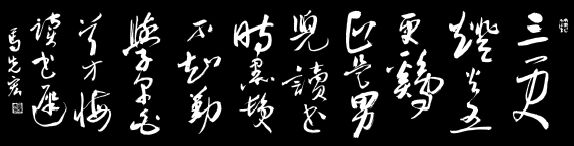 三更
燈火五
更鷄
正是男
兒讀書
時黑髮
不知勤
學早白
首方悔
讀書遲
馬